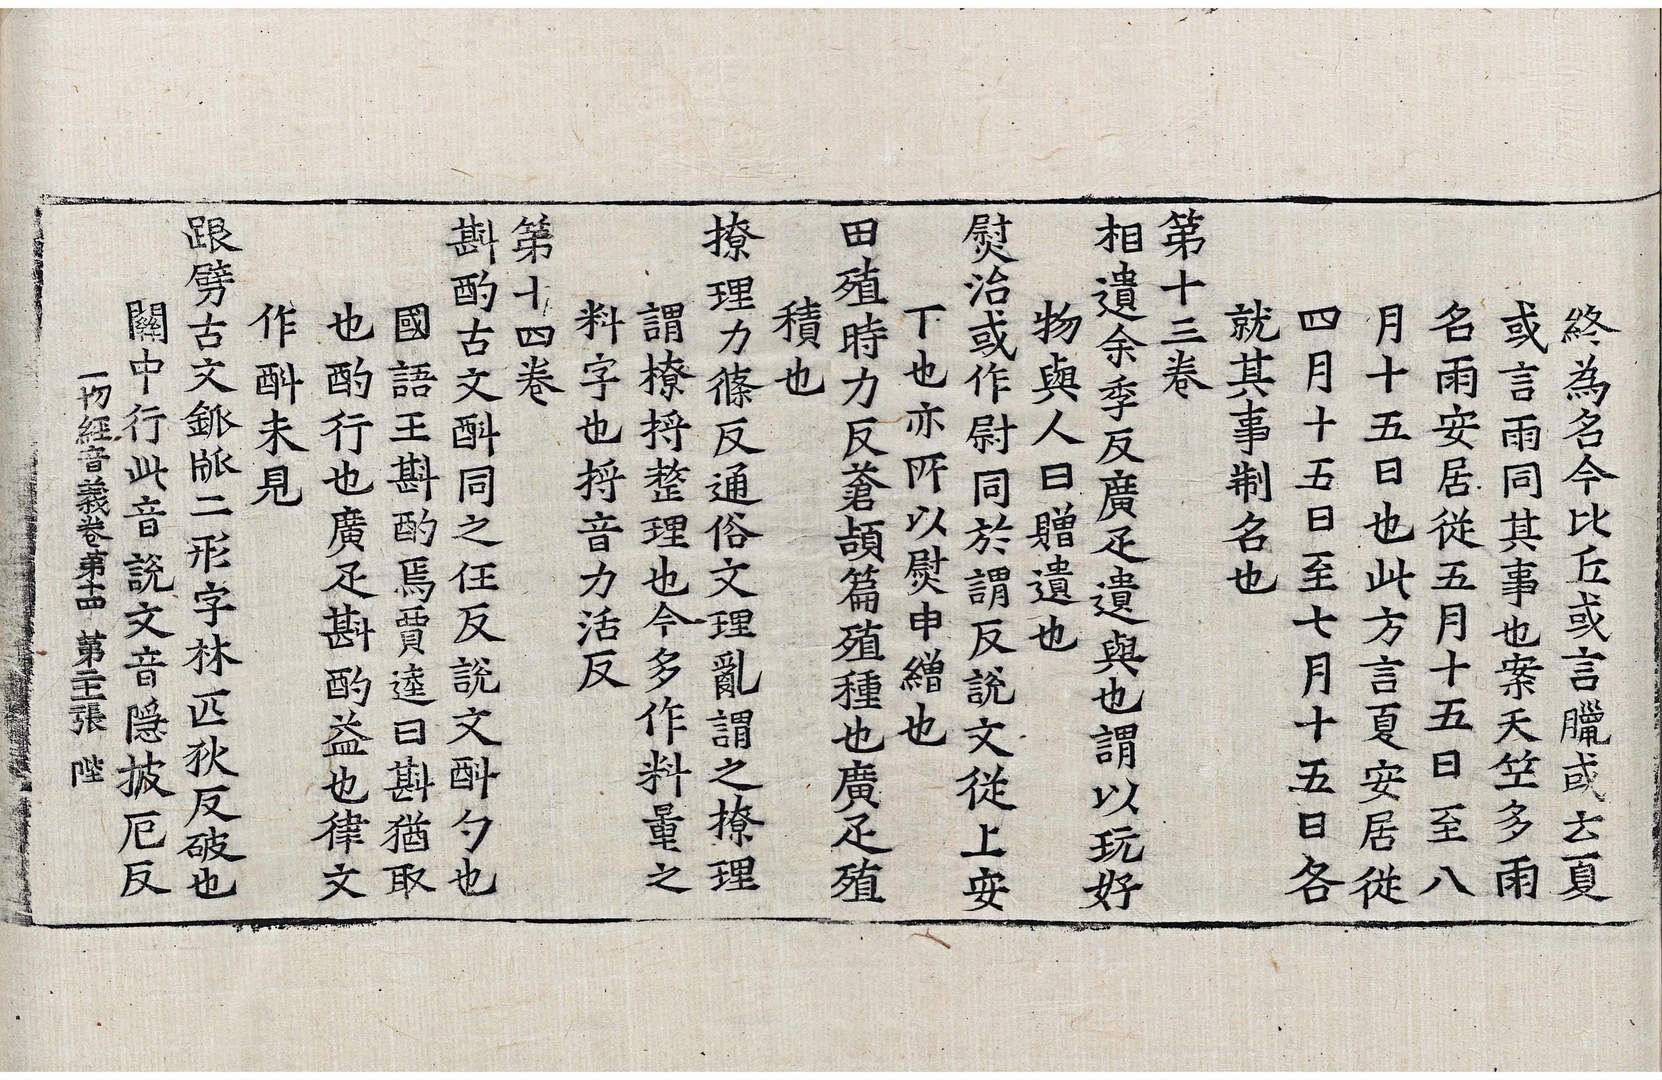 終為名今比丘或言臘或云夏
或言雨同其事也案天竺多雨
名雨安居從五月十五日至八
月十五日也此方言夏安居從
四月十五日至七月十五日各
就其事制名也
第十三卷
相遺余季反廣疋遺與也謂以玩好
物與人曰贈遺也
熨治或作尉同於謂反說文從上安
丁也亦所以熨申繒也
田殖時力反蒼頡篇殖種也廣疋殖
積也
撩理力篠反通俗文理亂謂之撩理
謂撩捋整理也今多作料量之
料字也捋音力活反
第十四卷
斟酌古文酙同之任反說文酙勺也
國語王斟酌焉賈逵曰斟猶取
也酌行也廣疋斟酌益也律文
作酙未見
跟劈古文𨦇𤗚二形字林匹狄反破也
關中行此音說文音隱披厄反
一切經音義卷第十四　第二張　陛